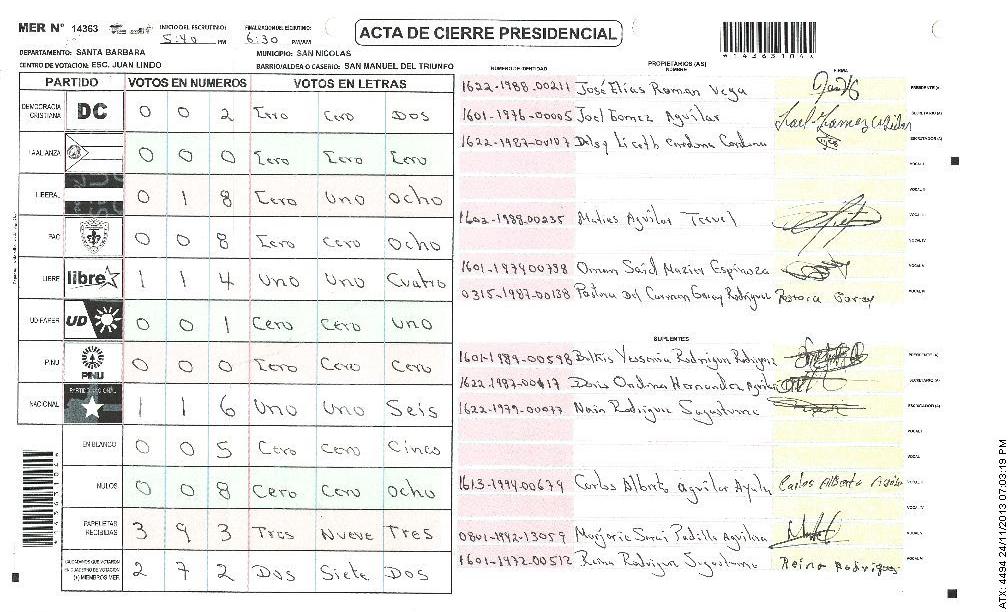 MER N° 14363 INICIO DEL ESCRUTINIO: 5:40 PM FINALIZACION DEL ESCRUTINIO: 6:30 PM/AM
ACTA DE CIERRE PRESIDENCIAL
DEPARTAMENTO: SANTA BARBARA MUNICIPIO: SAN NICOLAS
CENTRO DE VOTACION: ESC. JUAN LINDO BARRIO/ALDEA O CASERIO: SAN MANUEL DEL TRIUNFO
PARTIDO VOTOS EN NUMEROS VOTOS EN LETRAS
DEMOCRACIA CRISTIANA DC 0 0 2 Cero Cero Dos
LA ALIANZA 0 0 0 Cero Cero Cero
LIBERAL 0 1 8 Cero Uno Ocho
PAC 0 0 8 Cero Cero Ocho
LIBRE libre 1 1 4 Uno Uno Cuatro
UD FAPER UD 0 0 1 Cero Cero Uno
PINU PINU 0 0 0 Cero Cero Cero
NACIONAL PARTIDO NACIONAL 1 1 6 Uno Uno Seis
EN BLANCO 0 0 5 Cero Cero Cinco
NULOS 0 0 8 Cero Cero Ocho
PAPELETAS RECIBIDAS 3 9 3 Tres Nueve Tres
CIUDADANOS QUE VOTARON EN CUADERNO DE VOTACION (+) MIEMBROS MER 2 7 2 Dos Siete Dos
PROPIETARIOS (AS)
NUMERO DE IDENTIDAD NOMBRE FIRMA
1622-1988-00211 José Elias Roman Vega PRESIDENTE (A)
1601-1976-00005 Joel Gomez Aguilar SECRETARIO (A)
1622-1987-00107 Delsy Liceth Cardona Cardona ESCRUTADOR (A)
VOCAL I
VOCAL II
1602-1988-00235 Matias Aguilar VOCAL III
VOCAL IV
1601-1974-00798 Oman Said Espinoza VOCAL V
0315-1987-00138 Del Carmen Garay Rodriguez VOCAL VI
SUPLENTES
1601-1989-00598 Yessenia Rodriguez Rodriguez PRESIDENTE (A)
1622-1987-00417 Doris Ondina Hernandez Aguilar SECRETARIO (A)
1622-1979-00077 Rodriguez Sagastume ESCRUTADOR (A)
VOCAL I
VOCAL
1613-1994-00679 Carlos Alberto Aguilar Ayala Carlos Alberto VOCAL
VOCAL IV
0801-1992-13059 Marjorie Sarai Padilla Aguilera VOCAL V
1601-1972-00512 Reina Rodriguez Sagastume Reina Rodriguez VOCAL VI
ATX: 4494 24/11/2013 07:03:19 PM